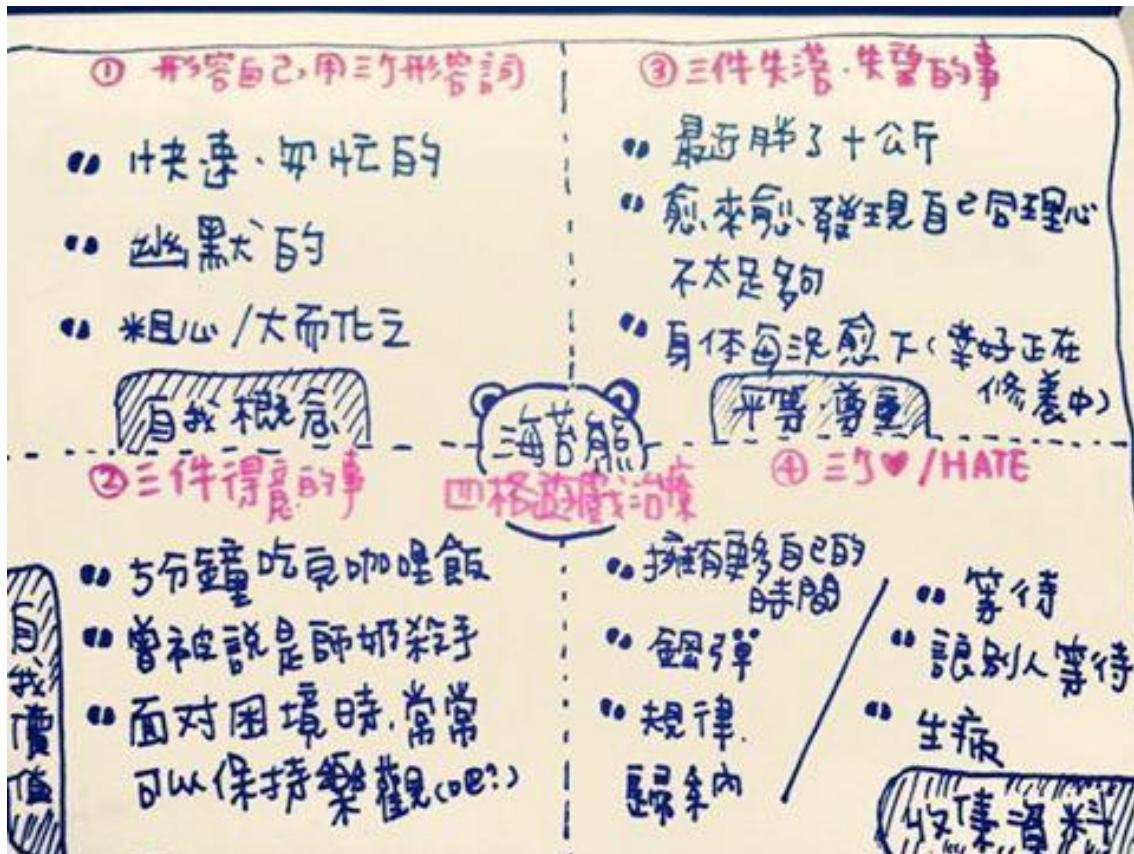 ① 形容自己,用三个形容詞
快速、匆忙的
幽默的
粗心/大而化之
自我概念
③ 三件失落、失望的事
最近胖了十公斤
愈來愈發現自己同理心
不太足夠
身体每況愈下(幸好正在
修養中)
平等、尊重
海苔熊
四格遊戲治療
② 三件得意的事
5分鐘吃完咖哩飯
曾被說是師奶殺手
面对困境時,常常
可以保持樂觀(吧?)
自我價值
④ 三个♥/HATE
擁有更多自己的
時間
鋼彈
規律、
歸納
等待
讓別人等待
生病
收集資料